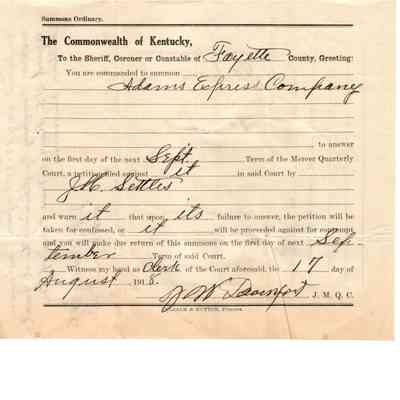 Summons Ordinary.
The Commonwealth of Kentucky,
To the Sheriff, Coroner or Constable of Fayette County, Greeting:
You are commanded to summon
Adams Express Company
to answer
on the first day of the next Sept. Term of the Mercer Quarterly
Court, a petition filed against it in said Court by
J. H. Settles
and warn it that upon its failure to answer, the petition will be
taken for confessed, or it will be proceeded against for contempt,
and you will make due return of this summons on the first day of next Sep-
tember Term of said Court.
Witness my hand as Clerk of the Court aforesaid, the 17 day of
August 191
J W Davenport J. M. Q. C.